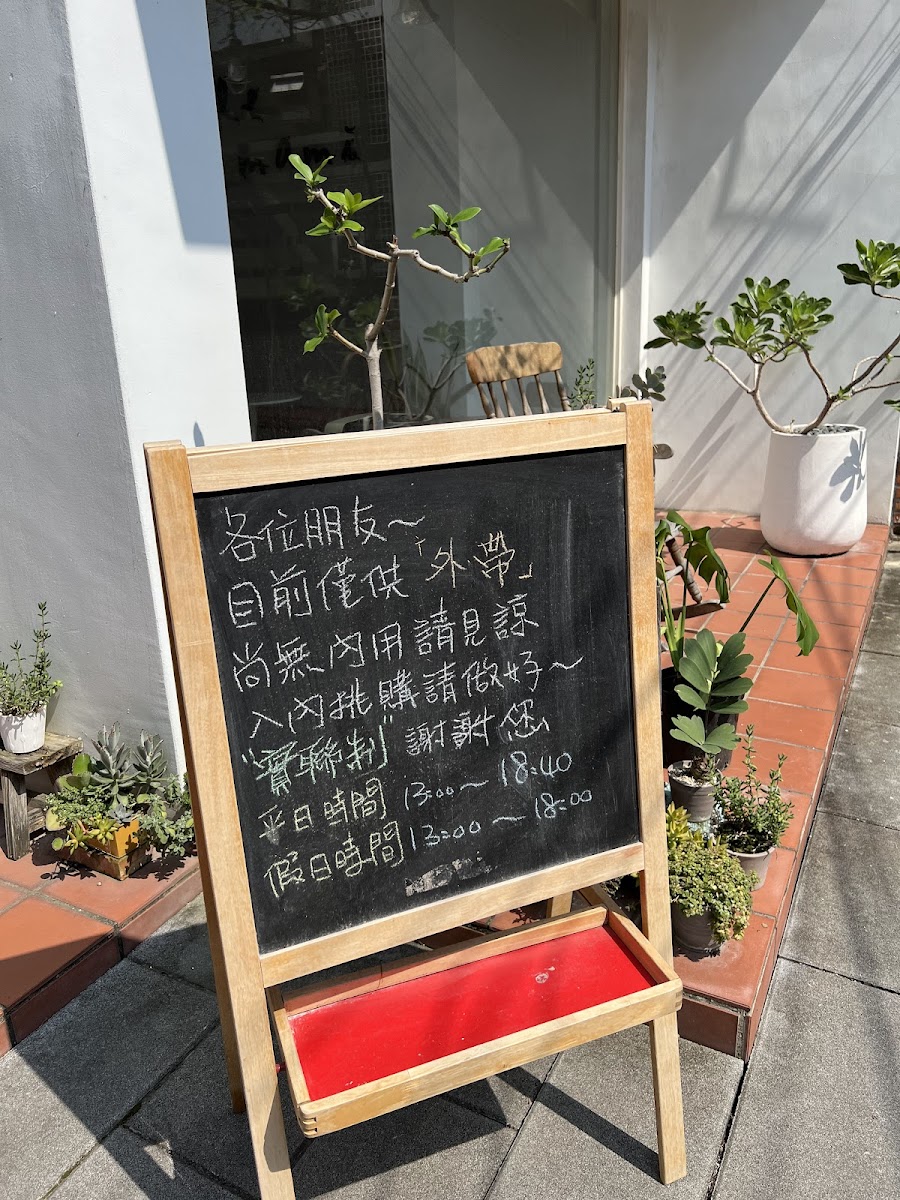 各位朋友～
目前僅供「外帶」
尚無內用請見諒
入內挑購請做好～
"實聯制" 謝謝您
平日時間 13:00～18:40
假日時間 13:00～18:00